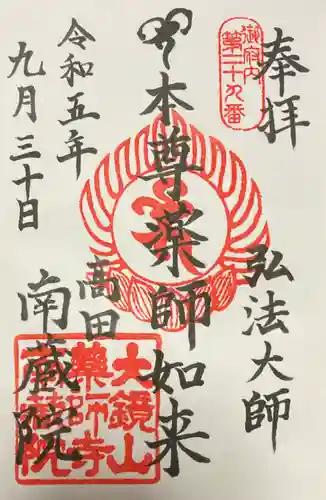 奉拝
御府内
第二十九番
弘法大師
本尊薬師如来
高田
南蔵院
令和五年
九月三十日
大鏡山
薬師寺
南蔵院